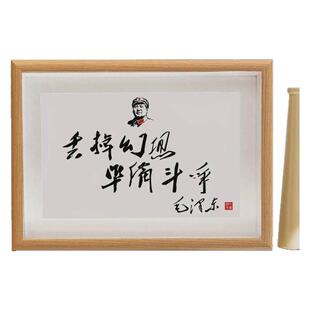 丢掉幻想
準備斗争
毛泽东